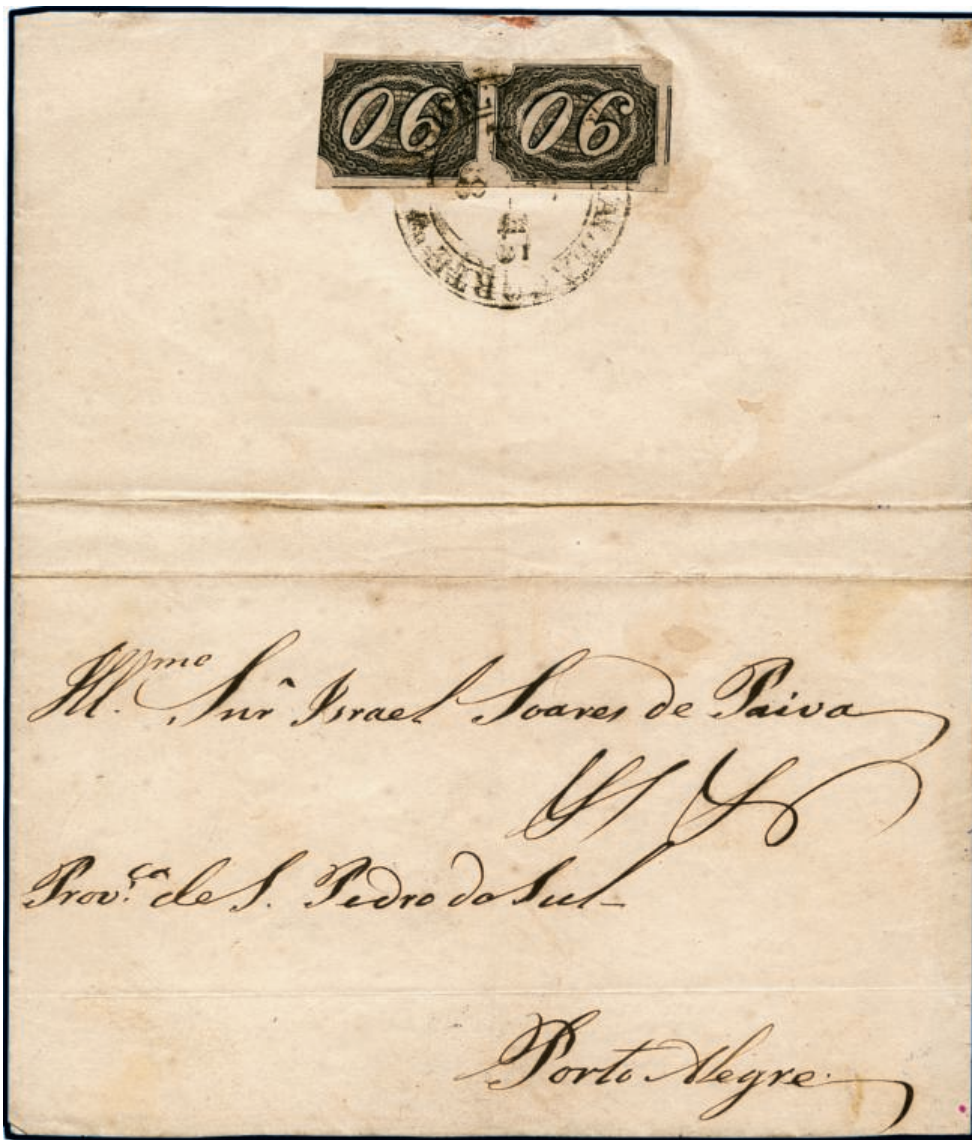 06 06
Ill.mo Snr Israel Soares de Paiva
Prov.ca de S. Pedro do Sul
Porto Alegre